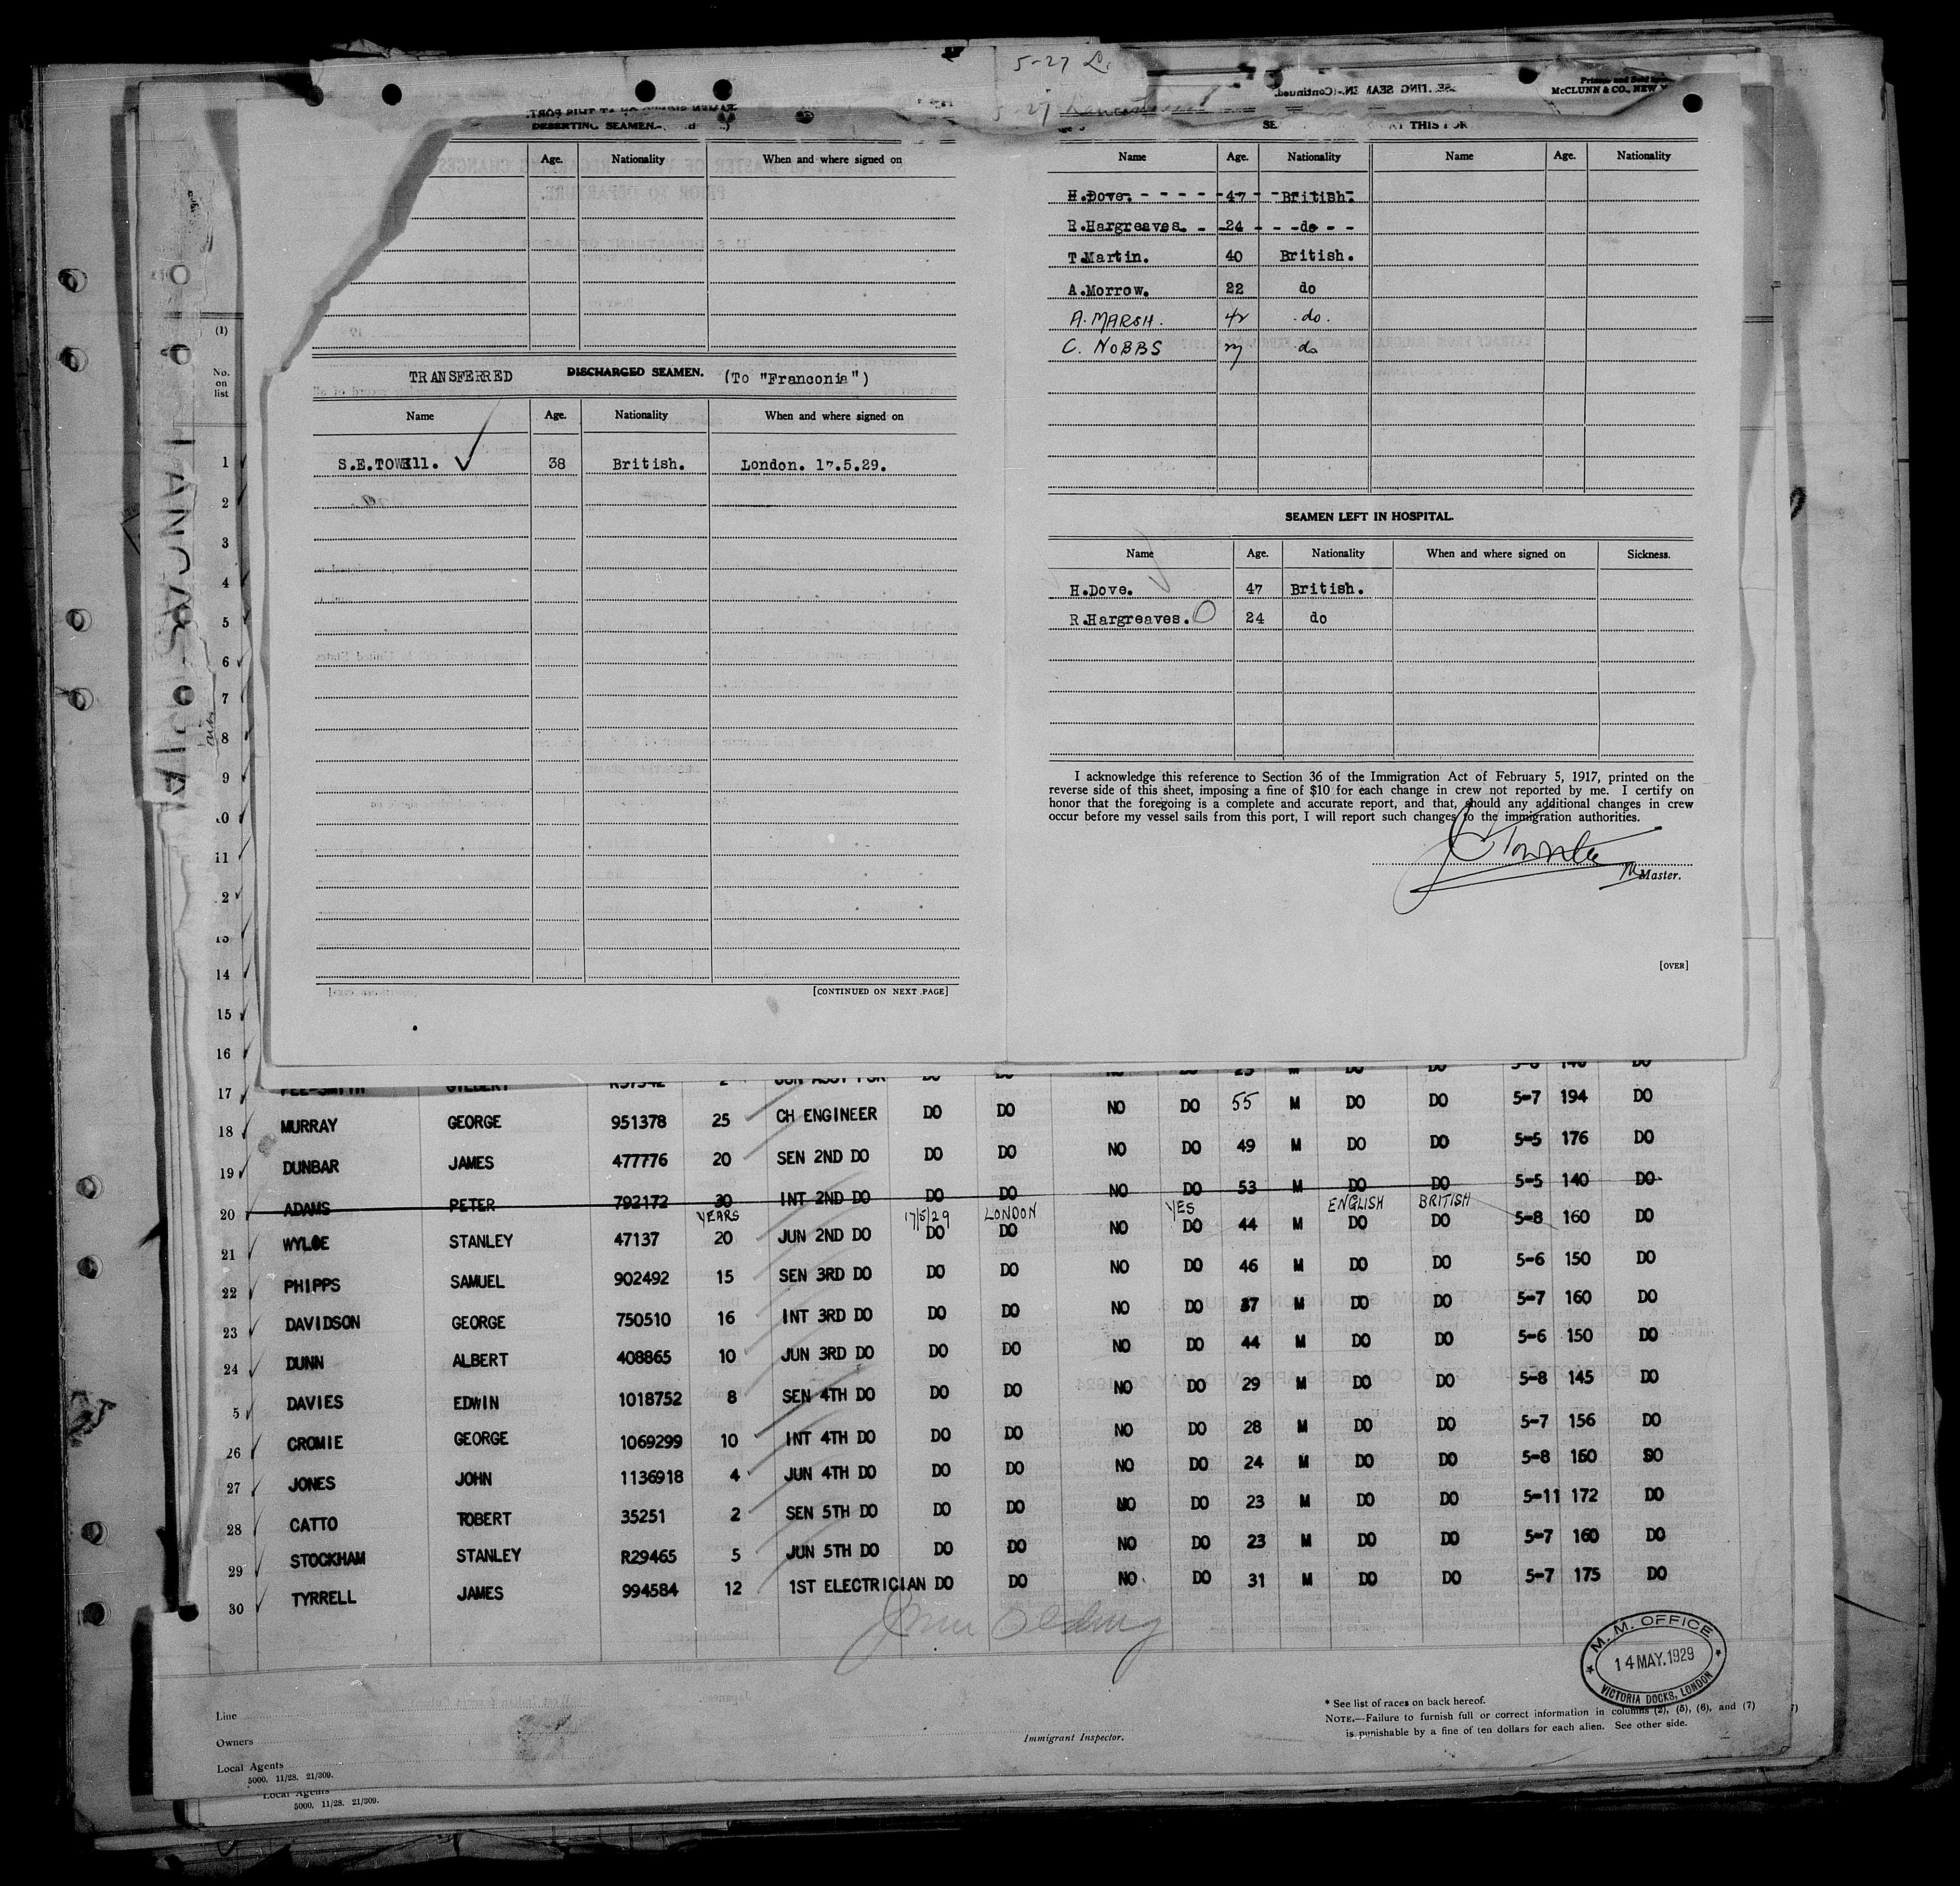 5-27 L.
DESERTING SEAMEN.
Age. Nationality When and where signed on
TRANSFERRED DISCHARGED SEAMEN. (To "Franconia")
Name Age. Nationality When and where signed on
S.E.TOWEll. ✓ 38 British. London. 17.5.29.
[CONTINUED ON NEXT PAGE]
McCLUNN & CO., NEW
AT THIS
Name Age. Nationality Name Age. Nationality
H.Dove. 47 British.
R.Hargreaves. 24 do
T.Martin. 40 British.
A.Morrow. 22 do
A. MARSH. 42 do.
C. NOBBS do
SEAMEN LEFT IN HOSPITAL.
Name Age. Nationality When and where signed on Sickness.
H.Dove. 47 British.
R.Hargreaves. 24 do
I acknowledge this reference to Section 36 of the Immigration Act of February 5, 1917, printed on the
reverse side of this sheet, imposing a fine of $10 for each change in crew not reported by me. I certify on
honor that the foregoing is a complete and accurate report, and that, should any additional changes in crew
occur before my vessel sails from this port, I will report such changes to the immigration authorities.
Master.
[OVER]
(1)
No. on list
1
2
3
4
5
6
7
8
9
.0
11
.2
13
14
15
16
17 FEE-SMITH GILBERT
18 MURRAY GEORGE 951378 25 CH ENGINEER DO DO NO DO 55 M DO DO 5-7 194 DO
19 DUNBAR JAMES 477776 20 SEN 2ND DO DO DO NO DO 49 M DO DO 5-5 176 DO
20 ADAMS PETER 792172 30 INT 2ND DO DO DO NO DO 53 M DO DO 5-5 140 DO
YEARS 17/5/29 LONDON YES ENGLISH BRITISH
21 WYLOE STANLEY 47137 20 JUN 2ND DO DO DO NO DO 44 M DO DO 5-8 160 DO
22 PHIPPS SAMUEL 902492 15 SEN 3RD DO DO DO NO DO 46 M DO DO 5-6 150 DO
23 DAVIDSON GEORGE 750510 16 INT 3RD DO DO DO NO DO 37 M DO DO 5-7 160 DO
24 DUNN ALBERT 408865 10 JUN 3RD DO DO DO NO DO 44 M DO DO 5-6 150 DO
5 DAVIES EDWIN 1018752 8 SEN 4TH DO DO DO NO DO 29 M DO DO 5-8 145 DO
26 CROMIE GEORGE 1069299 10 INT 4TH DO DO DO NO DO 28 M DO DO 5-7 156 DO
27 JONES JOHN 1136918 4 JUN 4TH DO DO DO NO DO 24 M DO DO 5-8 160 SO
28 CATTO TOBERT 35251 2 SEN 5TH DO DO DO NO DO 23 M DO DO 5-11 172 DO
29 STOCKHAM STANLEY R29465 5 JUN 5TH DO DO DO NO DO 23 M DO DO 5-7 160 DO
30 TYRRELL JAMES 994584 12 1ST ELECTRICIAN DO DO NO DO 31 M DO DO 5-7 175 DO
M. M. OFFICE
14 MAY. 1929
VICTORIA DOCKS, LONDON
Line
Owners
Local Agents
5000. 11/28. 21/309.
Immigrant Inspector.
* See list of races on back hereof.
NOTE.—Failure to furnish full or correct information in columns (2), (5), (6), and (7)
is punishable by a fine of ten dollars for each alien. See other side.
Local Agents
5000. 11/28. 21/309.